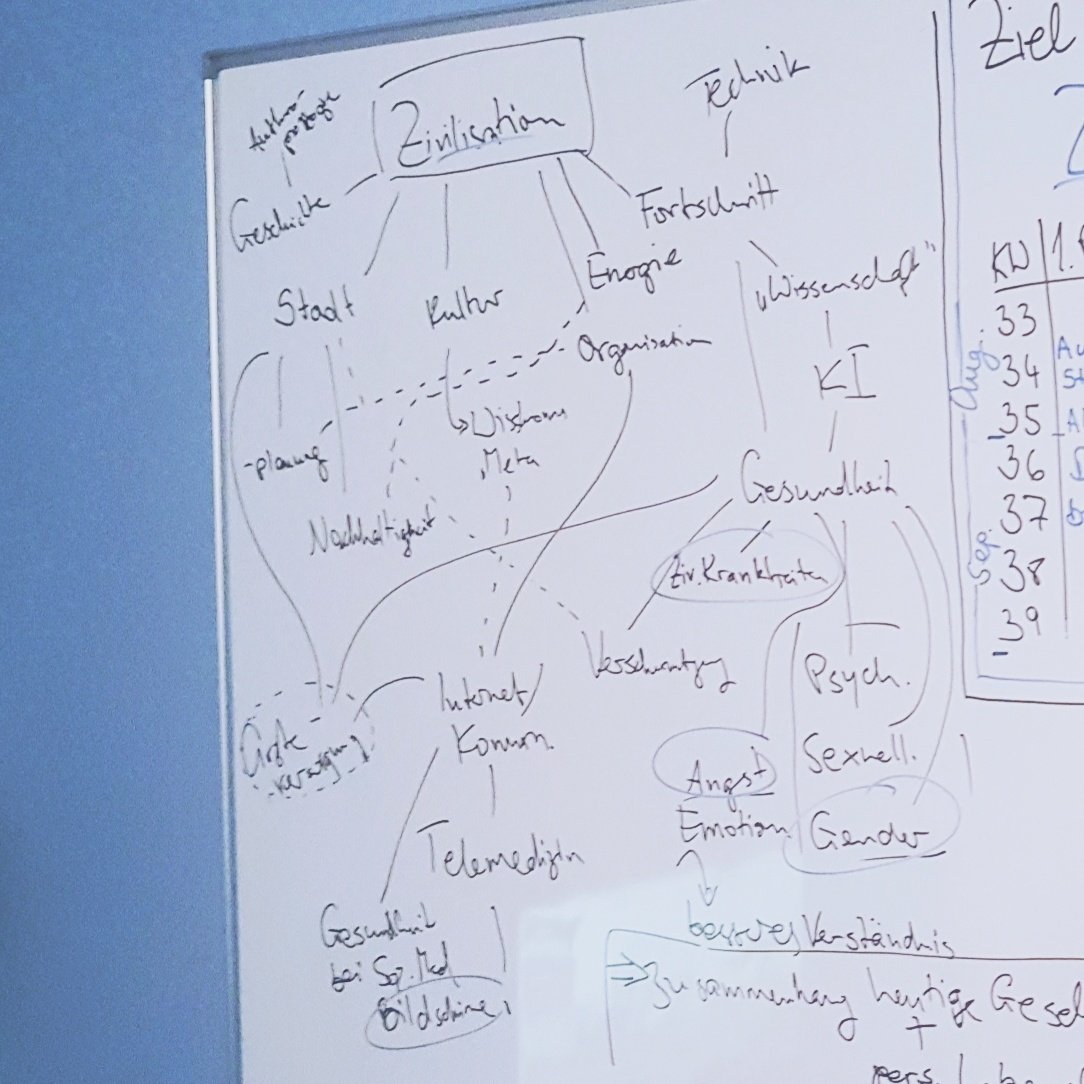 Zivilisation
Technik
Geschichte
Fortschritt
Stadt
Kultur
Energie
„Wissenschaft"
Organisation
KI
-planung
Meta
Nachhaltigkeit
Gesundheit
Ziv. Krankheiten
Verschmutzung
Internet/
Komm.
Psych.
Ärzte
Sexuell.
Angst
Emotion
Gender
Telemedizin
Gesundheit
bei Soz. Med
Bildschirme
besseres Verständnis
⇒ Zusammenhang heutige Gesel
+
pers.
Ziel
KW
33
34
35
36
37
38
39
Aug.
Sep.